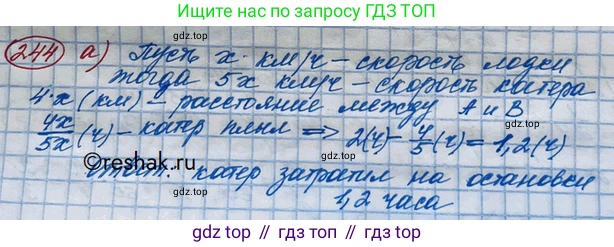 Ищите нас по запросу ГДЗ ТОП
244 а) Пусть х км/ч – скорость лодки
тогда 5х км/ч – скорость катера
4·х (км) – расстояние между А и В
4х/5х (ч) – катер плыл ⇒ 2(ч) – 4/5 (ч) = 1,2 (ч)
©reshak.ru
Ответ: катер затратил на остановки
1,2 часа
gdz top // гдз топ // gdz top